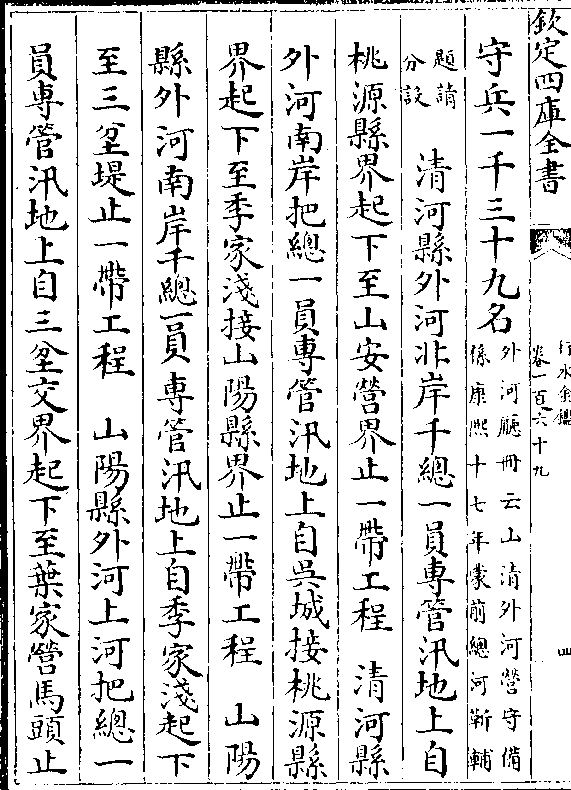 欽定四庫全書
行水金鑑
卷一百六十九
四
守兵一千三十九名
外河廳冊云山清外河營守備
係康熙十七年蒙前總河靳輔
題請
分設
清河縣外河北岸千總一員專管汛地上自
桃源縣界起下至山安營界止一帶工程　清河縣
外河南岸把總一員專管汛地上自吳城接桃源縣
界起下至季家淺接山陽縣界止一帶工程　山陽
縣外河南岸千總一員專管汛地上自季家淺起下
至三坌堤止一帶工程　山陽縣外河上河把總一
員專管汛地上自三坌交界起下至葉家營馬頭止